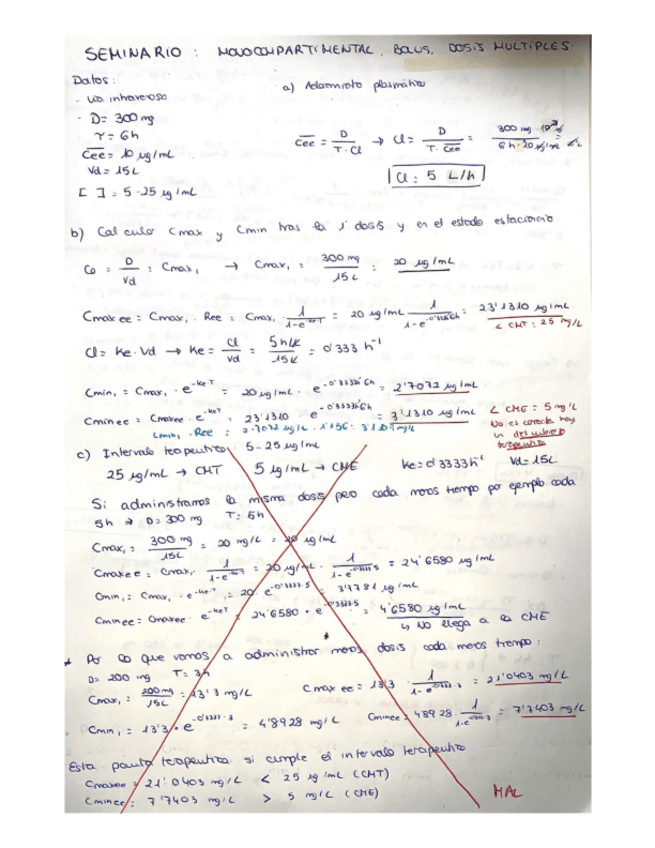 SEMINARIO : MONOCOMPARTIMENTAL, BOLUS, DOSIS MULTIPLES.
Datos:
- Vía intravenosa
- D= 300 mg
τ = 6h
Cee = 10 μg/mL
Vd = 15L
[ ] = 5-25 μg/mL
a) Aclaramiento plasmático
Cee = D / τ·Cl → Cl = D / τ·Cee =
Cl = 5 L/h
b) Calcular Cmax y Cmin tras la 1ª dosis y en el estado estacionario
C0 = D / Vd = Cmax,1 → Cmax,1 = 300 mg / 15L = 20 μg/mL
Cmax ee = Cmax,1 · Ree = Cmax,1 · 1 / 1-e^-ke·τ = 20 μg/mL · 1 / 1-e^-0'333·6h = 23'1310 μg/mL
< CMT = 25 mg/L
Cl = Ke · Vd → Ke = Cl / Vd = 5 h/L / 15L = 0'333 h⁻¹
Cmin,1 = Cmax,1 · e^-ke·τ = 20 μg/mL · e^-0'3333·6h = 2'7072 μg/mL
Cmin ee = Cmax ee · e^-ke·τ = 23'1310 · e^-0'3333·6h = 3'1310 μg/mL
< CME = 5 mg/L
No es correcta, hay
un descubierto
terapéutico
Cmin,1 · Ree = 2'7072 μg/L · 1'156 =
c) Intervalo terapeutico: 5-25 μg/mL
25 μg/mL → CMT 5 μg/mL → CME Ke=0'3333h⁻¹ Vd=15L
Si administramos la misma dosis pero cada menos tiempo por ejemplo cada
5h → D= 300 mg τ= 5h
Cmax,1 = 300 mg / 15L = 20 mg/L = 20 μg/mL
Cmax ee = Cmax,1 · 1 / 1-e^-ke·τ = 20 μg/mL · 1 / 1-e^-0'3333·5 = 24'6580 μg/mL
Cmin,1 = Cmax,1 · e^-ke·τ = 20 · e^-0'3333·5 = 3'7781 μg/mL
Cmin ee = Cmax ee · e^-ke·τ = 24'6580 · e^-0'3333·5 = 4'6580 μg/mL
↳ No llega a la CME
* Por lo que vamos a administrar menos dosis cada menos tiempo:
D= 200 mg τ= 3h
Cmax,1 = 200mg / 15L = 13'3 mg/L Cmax ee = 13'3 · 1 / 1-e^-0'333·3 = 21'0403 mg/L
Cmin,1 = 13'3 · e^-0'333·3 = 4'8928 mg/L Cmin ee = 4'8928 · 1 / 1-e^-0'333·3 = 7'7403 mg/L
Esta pauta terapeutica si cumple el intervalo terapeutico
Cmax ee = 21'0403 mg/L < 25 μg/mL (CMT)
Cmin ee = 7'7403 mg/L > 5 mg/L (CME)
MAL